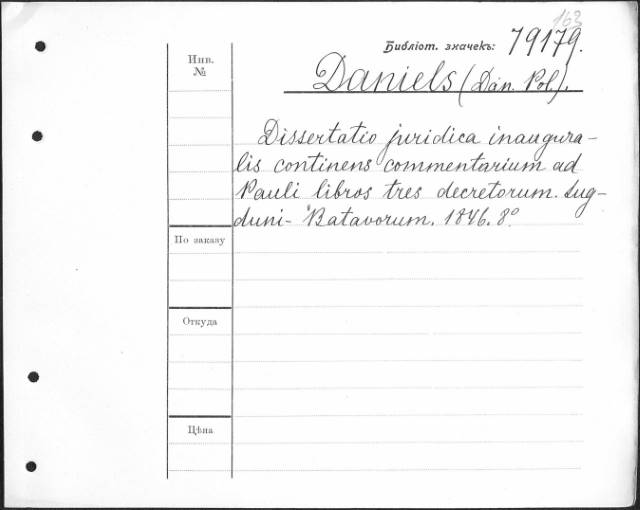 163
Библіот. значекъ: 79179.
Инв.
№
Daniels (Dan. Pol.).
Dissertatio juridica inaugura-
lis continens commentarium ad
Pauli libros tres decretorum. Lug-
duni-Batavorum. 1846. 8°.
По заказу
Откуда
Цѣна